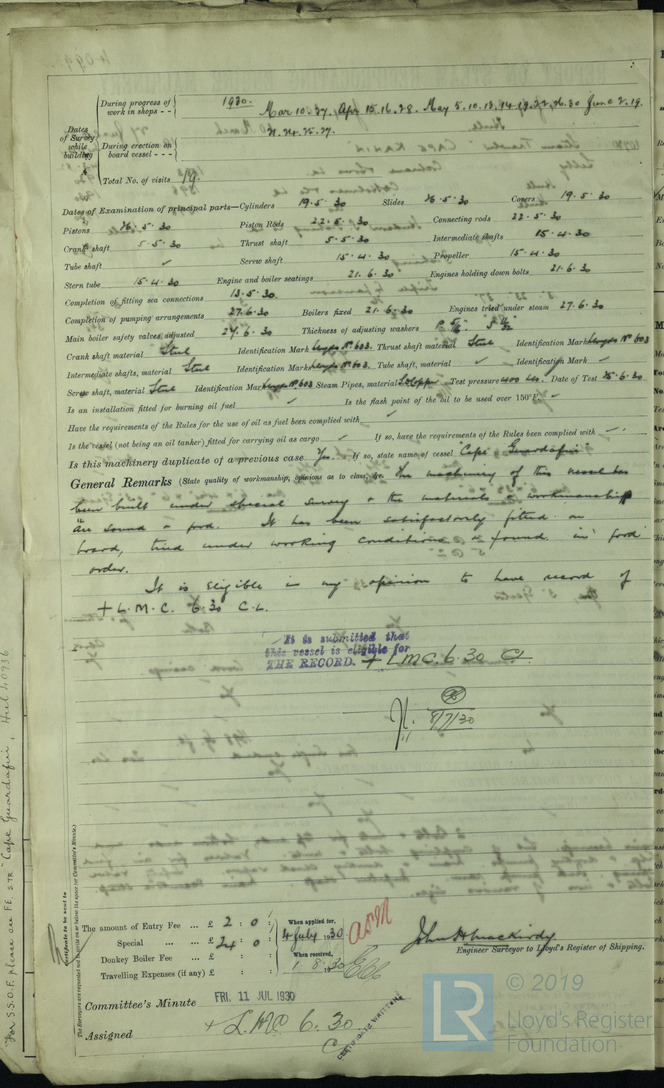 During progress of work in shops - -
1930.
Mar 10. 27, Apr 15. 16. 28. May 5. 10. 13. 14. 19. 22. 26. 30 June 2. 19.
21. 24. 25. 27.
Dates of Survey while building
During erection on board vessel - - -
Total No. of visits 19.
Dates of Examination of principal parts—Cylinders 19.5.30 Slides 26.5.30 Covers 19.5.30
Pistons 26.5.30 Piston Rods 22.5.30 Connecting rods 22.5.30
Crank shaft 5.5.30 Thrust shaft 5.5.30 Intermediate shafts 15.4.30
Tube shaft ✓ Screw shaft 15.4.30 Propeller 15.4.30
Stern tube 15.4.30 Engine and boiler seatings 21.6.30 Engines holding down bolts 21.6.30
Completion of fitting sea connections 13.5.30
Completion of pumping arrangements 27.6.30 Boilers fixed 21.6.30 Engines tried under steam 27.6.30
Main boiler safety valves adjusted 24.6.30 Thickness of adjusting washers
Crank shaft material Steel Identification Mark Lloyds No 603. Thrust shaft material Steel Identification Mark Lloyds No 603
Intermediate shafts, material Steel Identification Mark Lloyds No 603. Tube shaft, material ✓ Identification Mark ✓
Screw shaft, material Steel Identification Mark Lloyds No 603 Steam Pipes, material S.D. Copper Test pressure 400 lbs. Date of Test 25.6.30
Is an installation fitted for burning oil fuel ✓ Is the flash point of the oil to be used over 150°F. ✓
Have the requirements of the Rules for the use of oil as fuel been complied with ✓
Is the vessel (not being an oil tanker) fitted for carrying oil as cargo ✓ If so, have the requirements of the Rules been complied with ✓
Is this machinery duplicate of a previous case Yes. If so, state name of vessel "Cape Guardafui"
General Remarks (State quality of workmanship, opinions as to class, &c. The machinery of this vessel has
been built under special survey & the materials & workmanship
are sound & good. It has been satisfactorily fitted on
board, tried under working conditions & found in good
order.
It is eligible in my opinion to have record of
+ L.M.C. 6.30 C.L.
It is submitted that
this vessel is eligible for
THE RECORD. + LMC. 6 30 CL
8/7/30
For S.S.O.F. please see F.E. STR "Cape Guardafui", Hull 40936
Certificate to be sent to
The Surveyors are requested not to write on or below the space for Committee's Minute.
The amount of Entry Fee ... £ 2 : 0 :
Special ... ... £ 24 : 0 :
Donkey Boiler Fee ... £ : :
Travelling Expenses (if any) £ : :
When applied for,
4 July 1930.
When received,
1.8.1930
John H Mackirdy
Engineer Surveyor to Lloyd's Register of Shipping.
Committee's Minute FRI. 11 JUL 1930
Assigned + L.M.C 6.30
CL
CERTIFICATE WRITTEN
LR © 2019
Lloyd's Register
Foundation